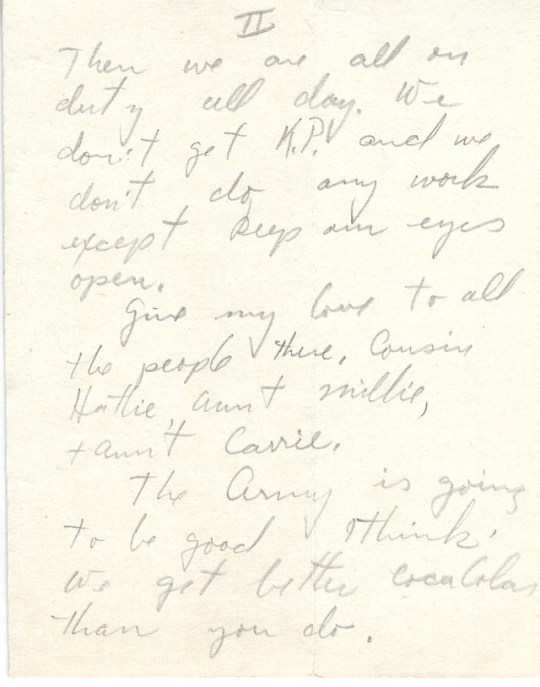 II
Then we are all on
duty all day. We
don't get K.P. and we
don't do any work
except keep our eyes
open.
Give my love to all
the people there, Cousin
Hattie, Aunt Millie,
+ Aunt Carrie.
The Army is going
to be good I think.
We get better CocaColas
than you do.